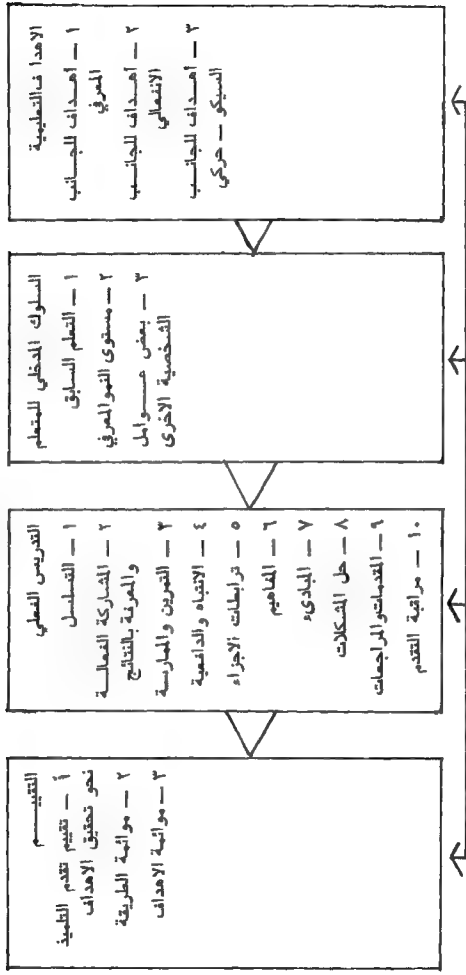 الاهدا ف التعليمية
١ – أهداف للجانب
المعرفي
٢ – أهداف للجانب
الانفعالي
٣ – أهداف للجانب
السيكو – حركي
السلوك المدخلي للمتعلم
١ – التعلم السابق
٢ – مستوى النمو المعرفي
٣ – بعض عوامل
الشخصية الاخرى
التدريس الفعلي
١ – التسلسل
٢ – المشاركة الفعالة
٣ – التمرين والممارسة
والمعرفة بالنتائج
٤ – الانتباه والدافعية
٥ – ترابطات الاجزاء
٦ – المفاهيم
٧ – المبادىء
٨ – حل المشكلات
٩ – المقدمات والمراجعات
١٠ – مراقبة التقدم
التقييم
أ – تقييم تقدم التلميذ
نحو تحقيق الاهداف
٢ – موائمة الطريقة
٣ – موائمة الاهداف